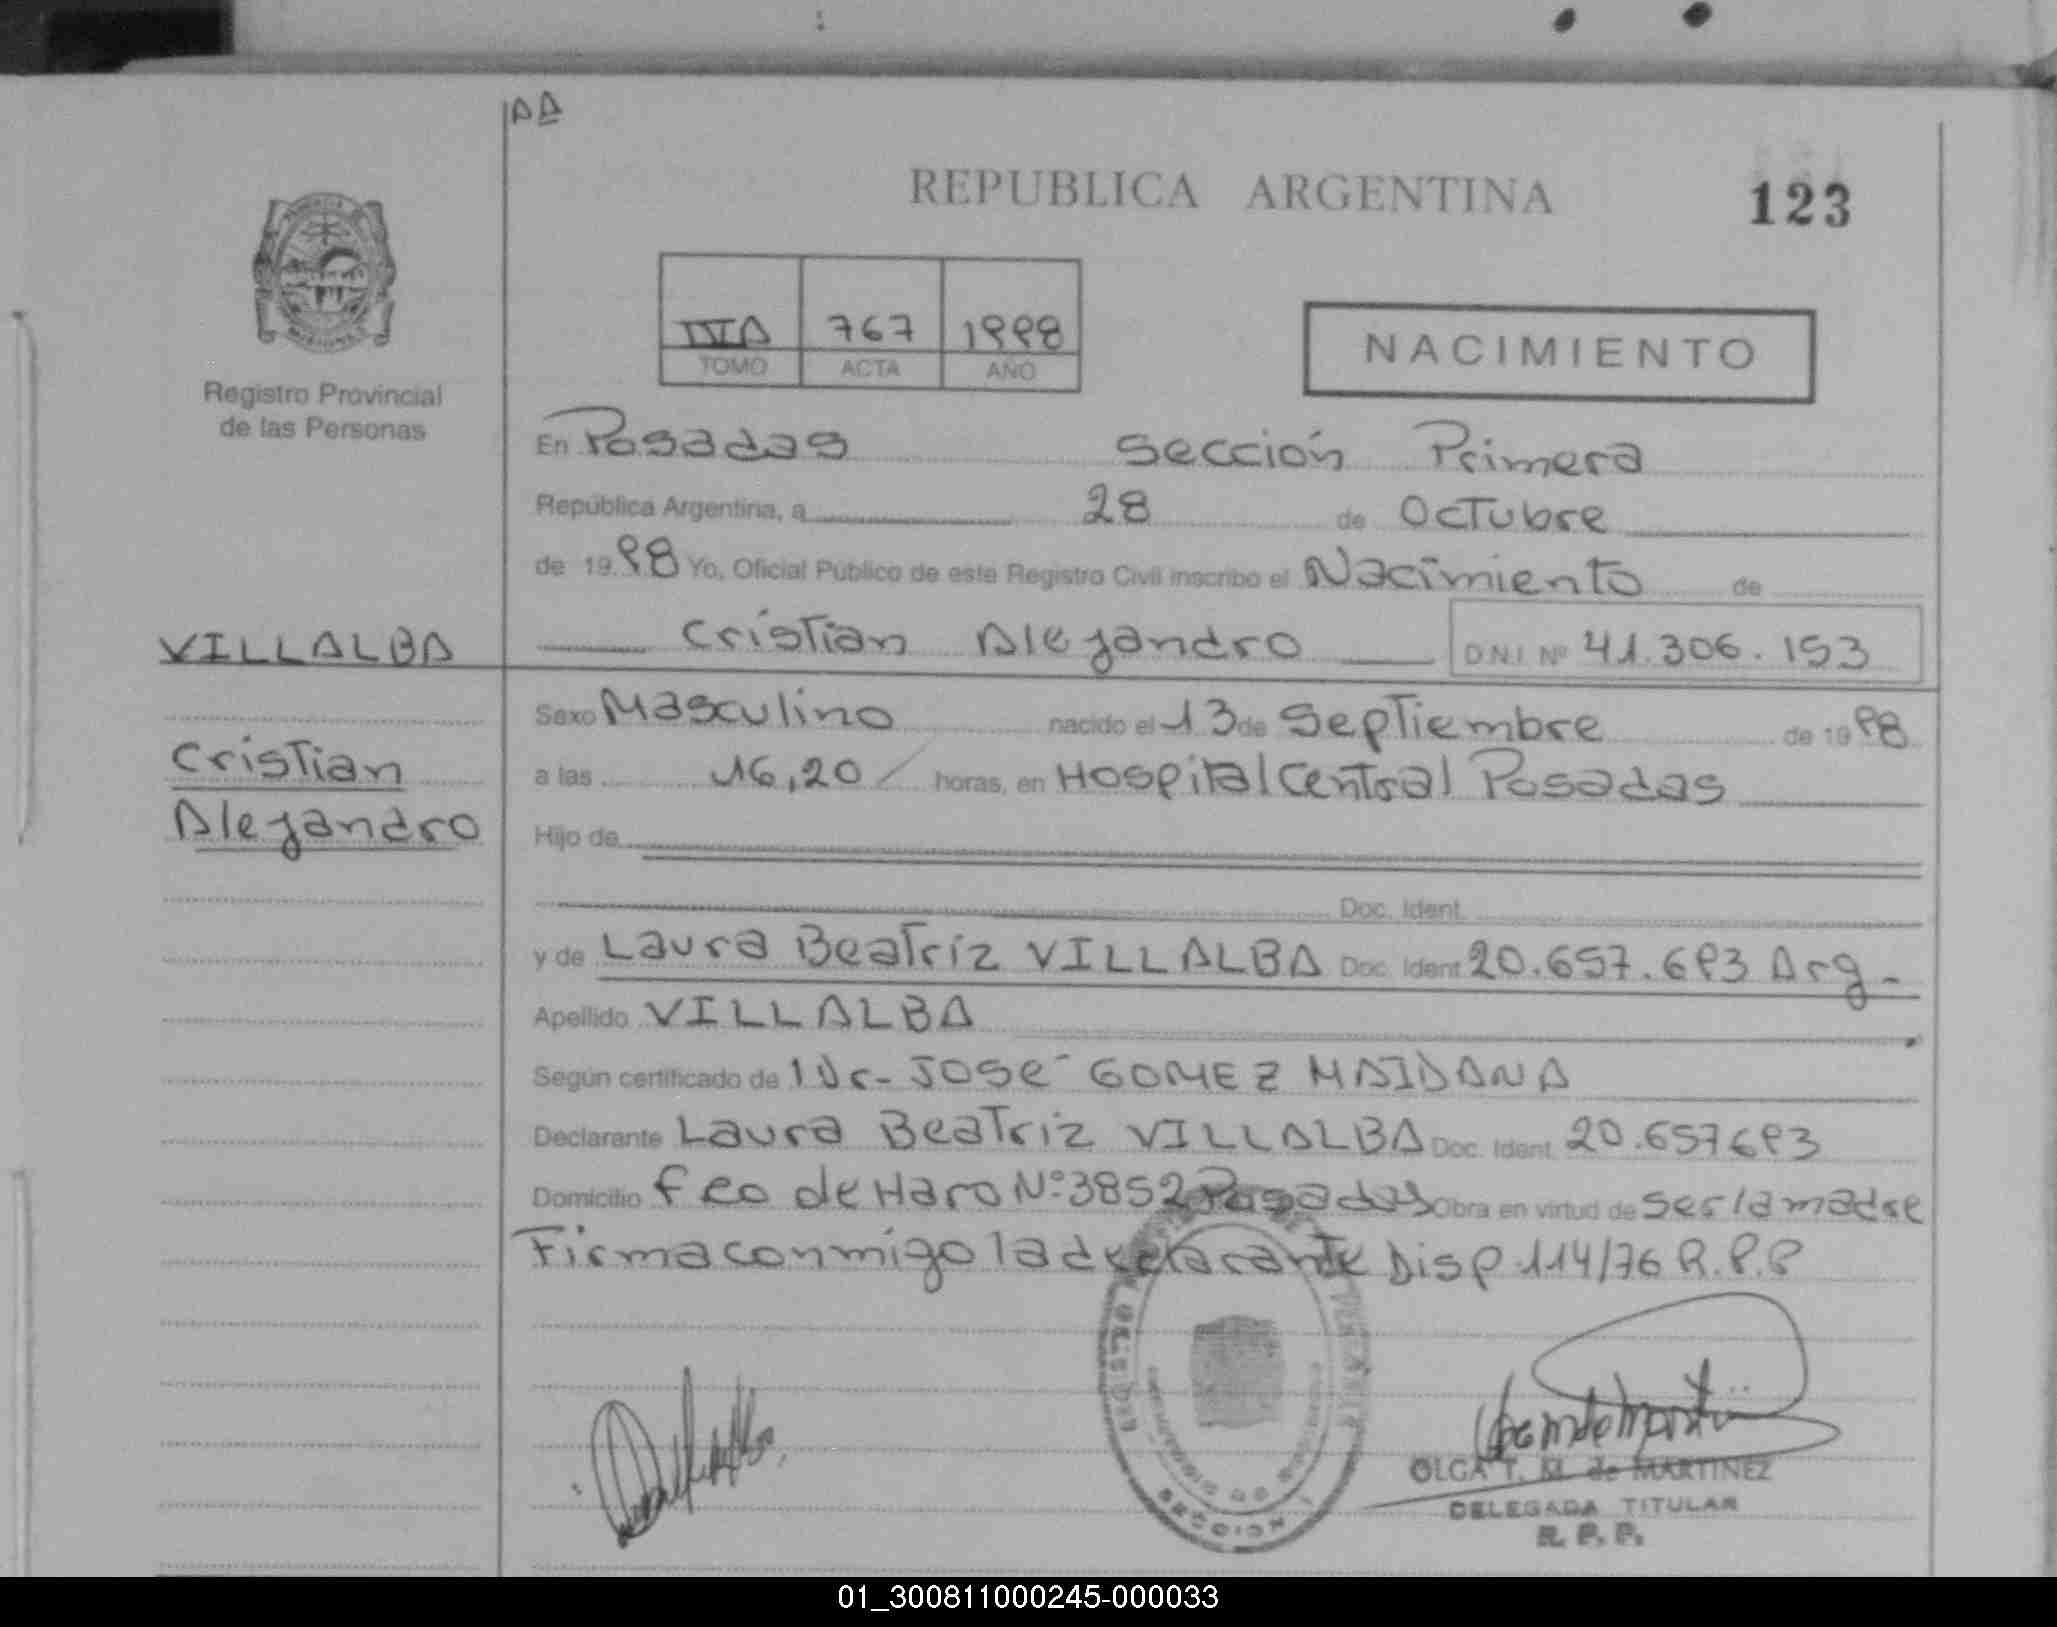 AA
REPUBLICA ARGENTINA
123
767 1998
TOMO ACTA AÑO
NACIMIENTO
Registro Provincial
de las Personas
En Posadas Sección Primera
República Argentina, a 28 de Octubre
de 1998 Yo, Oficial Público de este Registro Civil inscribo el Nacimiento de
VILLALBA
Cristian Alejandro D.N.I. Nº 41.306.153
Sexo Masculino nacido el 13 de Septiembre de 1998
Cristian
Alejandro
a las 16,20 horas, en Hospital Central Posadas
Hijo de
Doc. Ident.
y de Laura Beatriz VILLALBA Doc. Ident. 20.657.693 Arg.
Apellido VILLALBA
Según certificado de JOSÉ GOMEZ MAIDANA
Declarante Laura Beatriz VILLALBA Doc. Ident. 20.657693
Domicilio Fco de Haro Nº 3852 Posadas Obra en virtud de ser la madre
Firma conmigo la declarante Disp. 114/76 R.P.P
SECCION
OLGA T. M. de MARTINEZ
DELEGADA TITULAR
R. P. P.
01_300811000245-000033